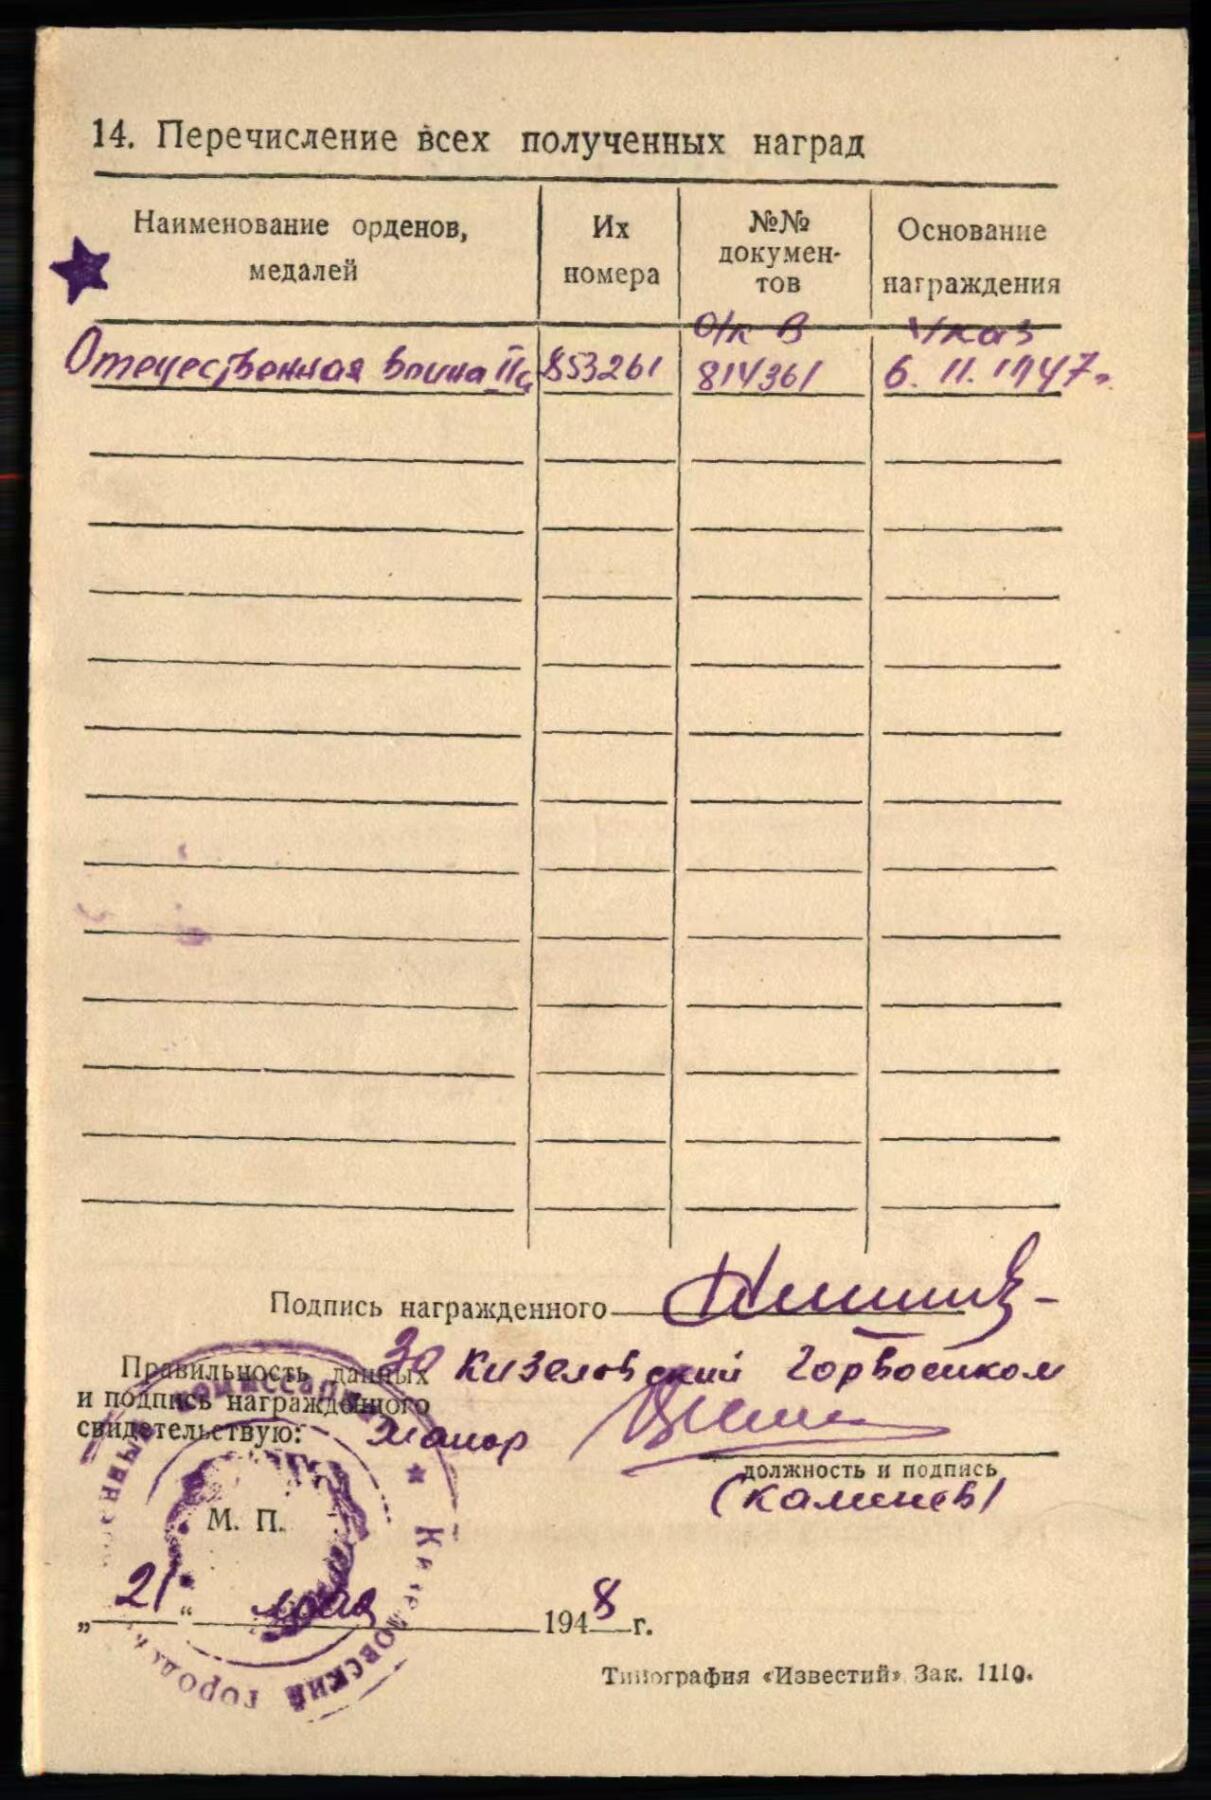 14. Перечисление всех полученных наград
Наименование орденов, медалей
Их номера
№№ докумен-тов
Основание награждения
О/к В
Указ
Отечественная война II ст
853261
814361
6. 11. 1947 г.
Подпись награжденного
Правильность данных
и подпись награжденного
свидетельствую:
За Кизеловский Горвоенком
майор
должность и подпись
(Каменев)
М. П.
„21“ мая 1948 г.
Кизеловский городск
военный комиссариат
Типография «Известий» Зак. 1110.